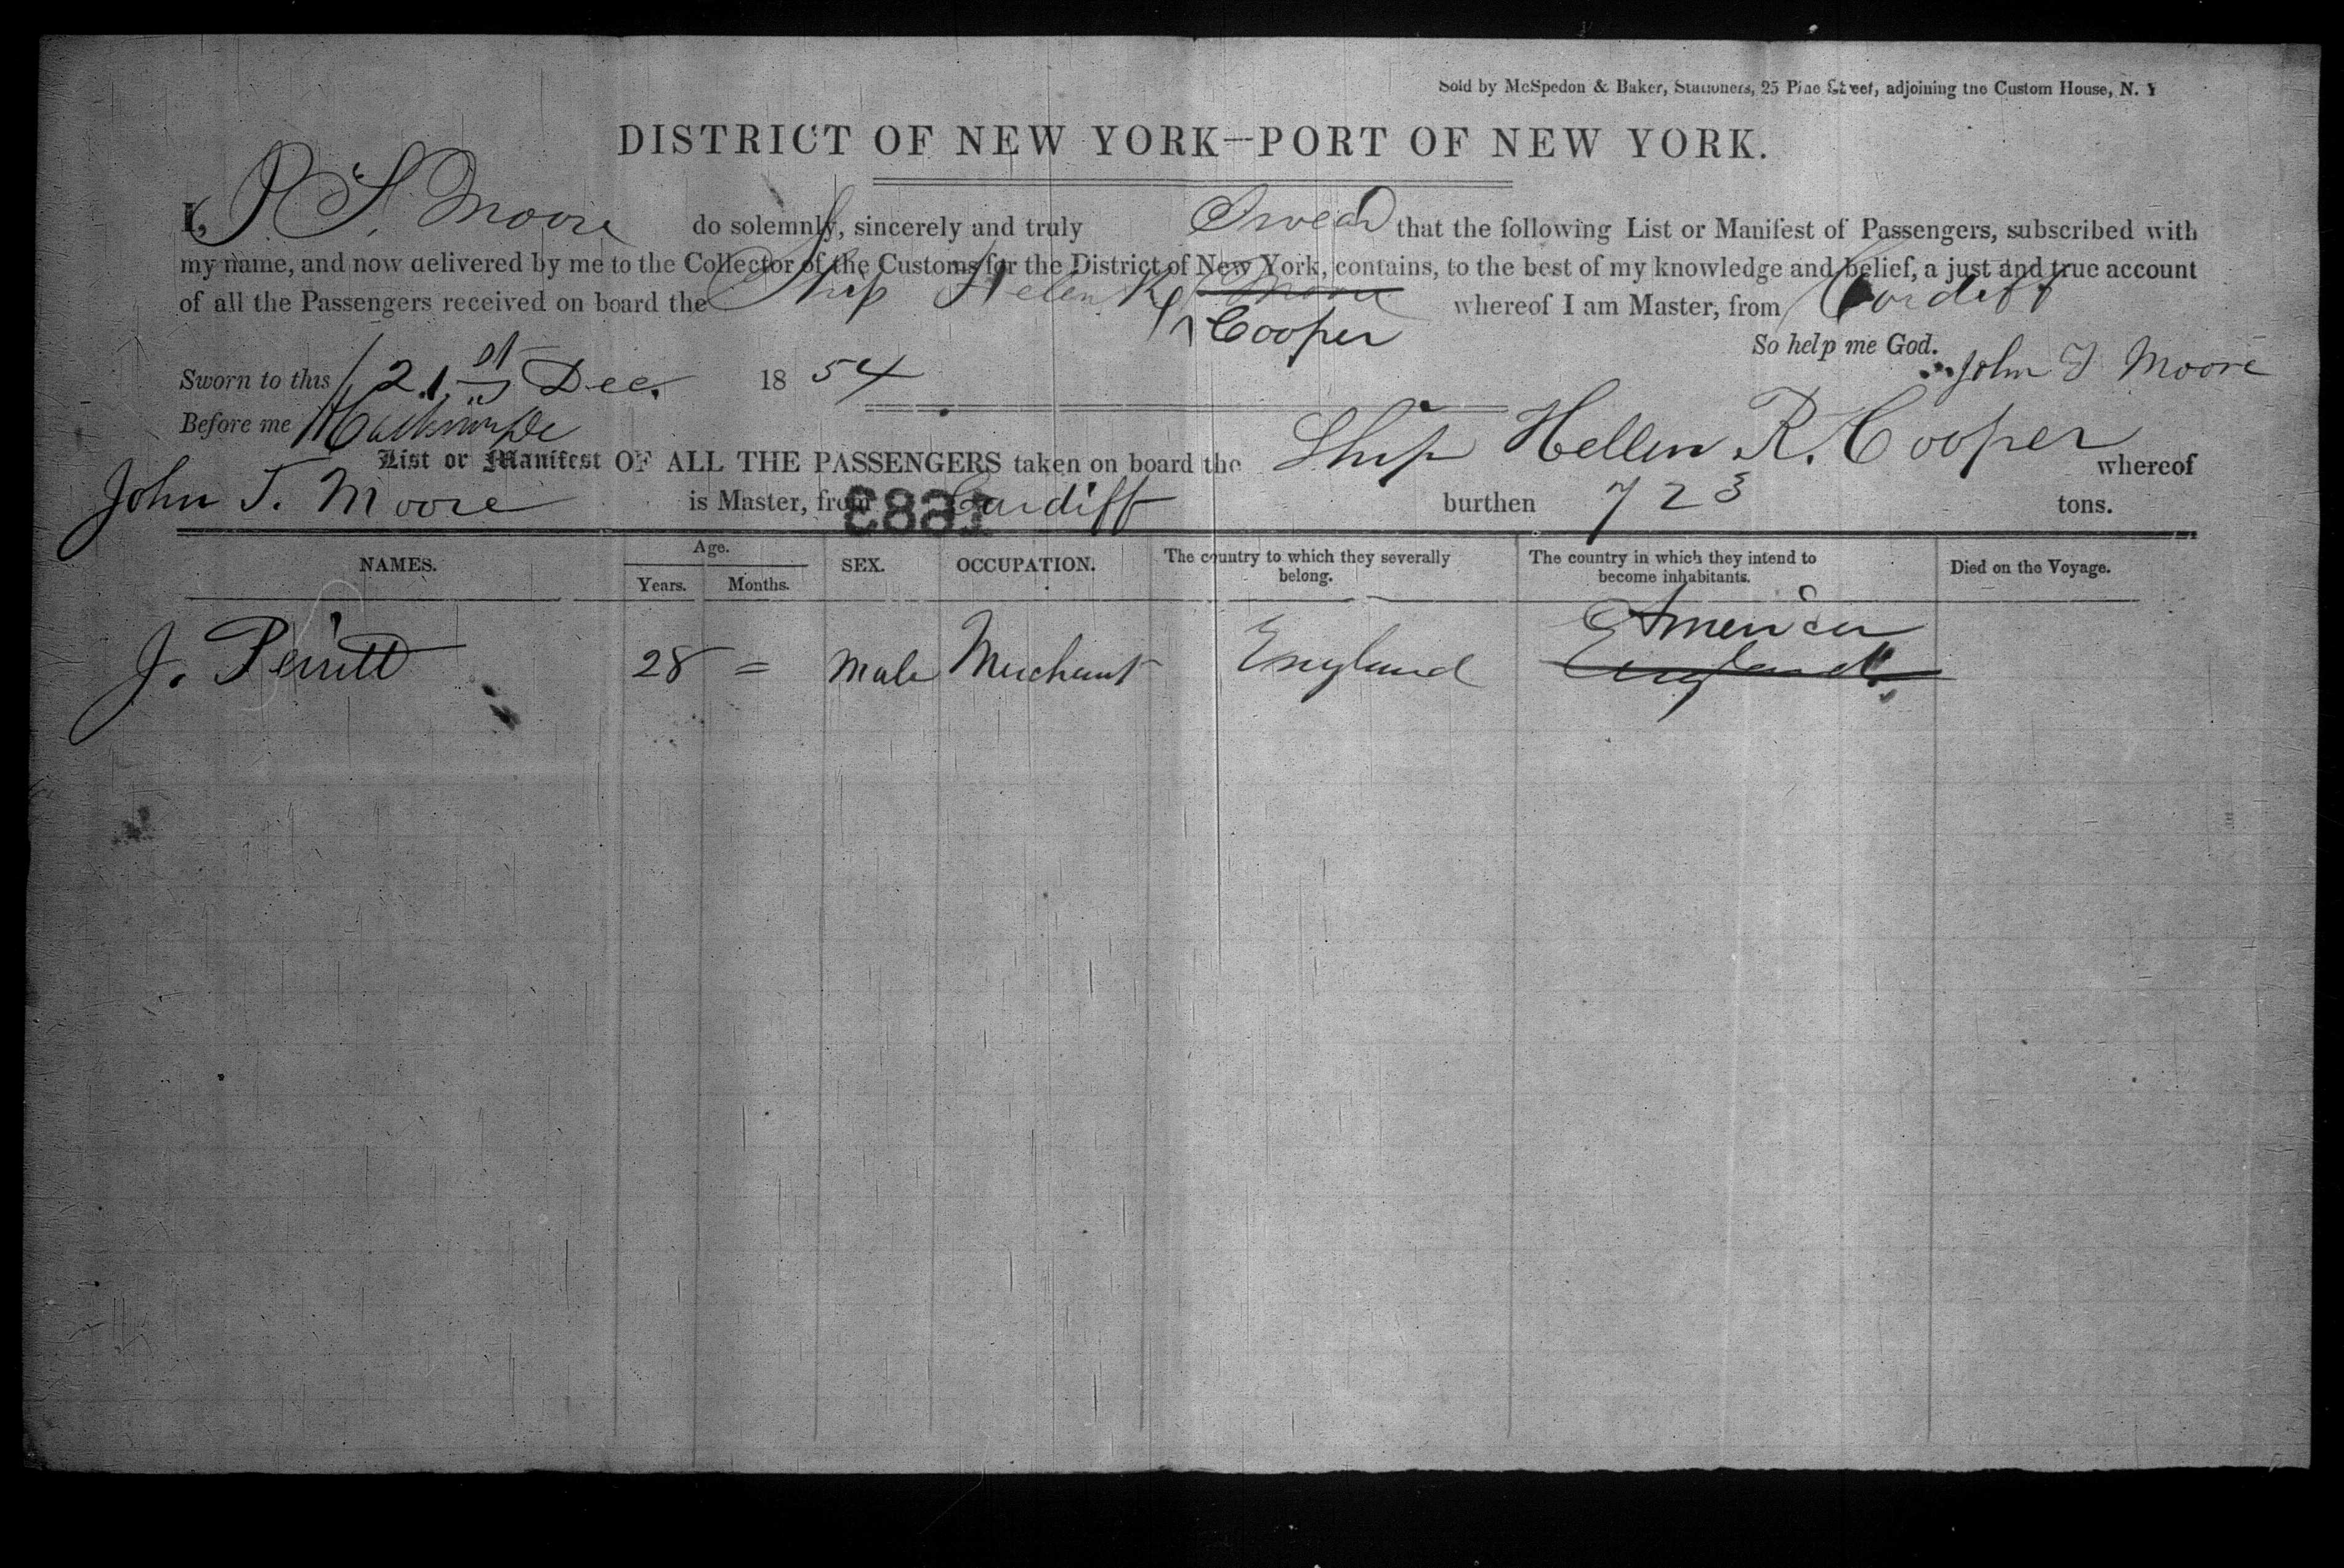 Sold by McSpedon & Baker, Stationers, 25 Pine Street, adjoining the Custom House, N. Y
DISTRICT OF NEW YORK—PORT OF NEW YORK.
I, J. T. Moore do solemnly, sincerely and truly Swear that the following List or Manifest of Passengers, subscribed with
my name, and now delivered by me to the Collector of the Customs for the District of New York, contains, to the best of my knowledge and belief, a just and true account
of all the Passengers received on board the Ship Helen R Moore whereof I am Master, from Cardiff
Cooper
So help me God.
John T Moore
Sworn to this 21st Dec. 1854
Before me
List or Manifest OF ALL THE PASSENGERS taken on board the Ship Hellen R. Cooper whereof
John T. Moore is Master, from Cardiff burthen 723 tons.
1683
NAMES. Age. Years. Months. SEX. OCCUPATION. The country to which they severally belong. The country in which they intend to become inhabitants. Died on the Voyage.
America
J. Perritt 28 = Male Merchant England England